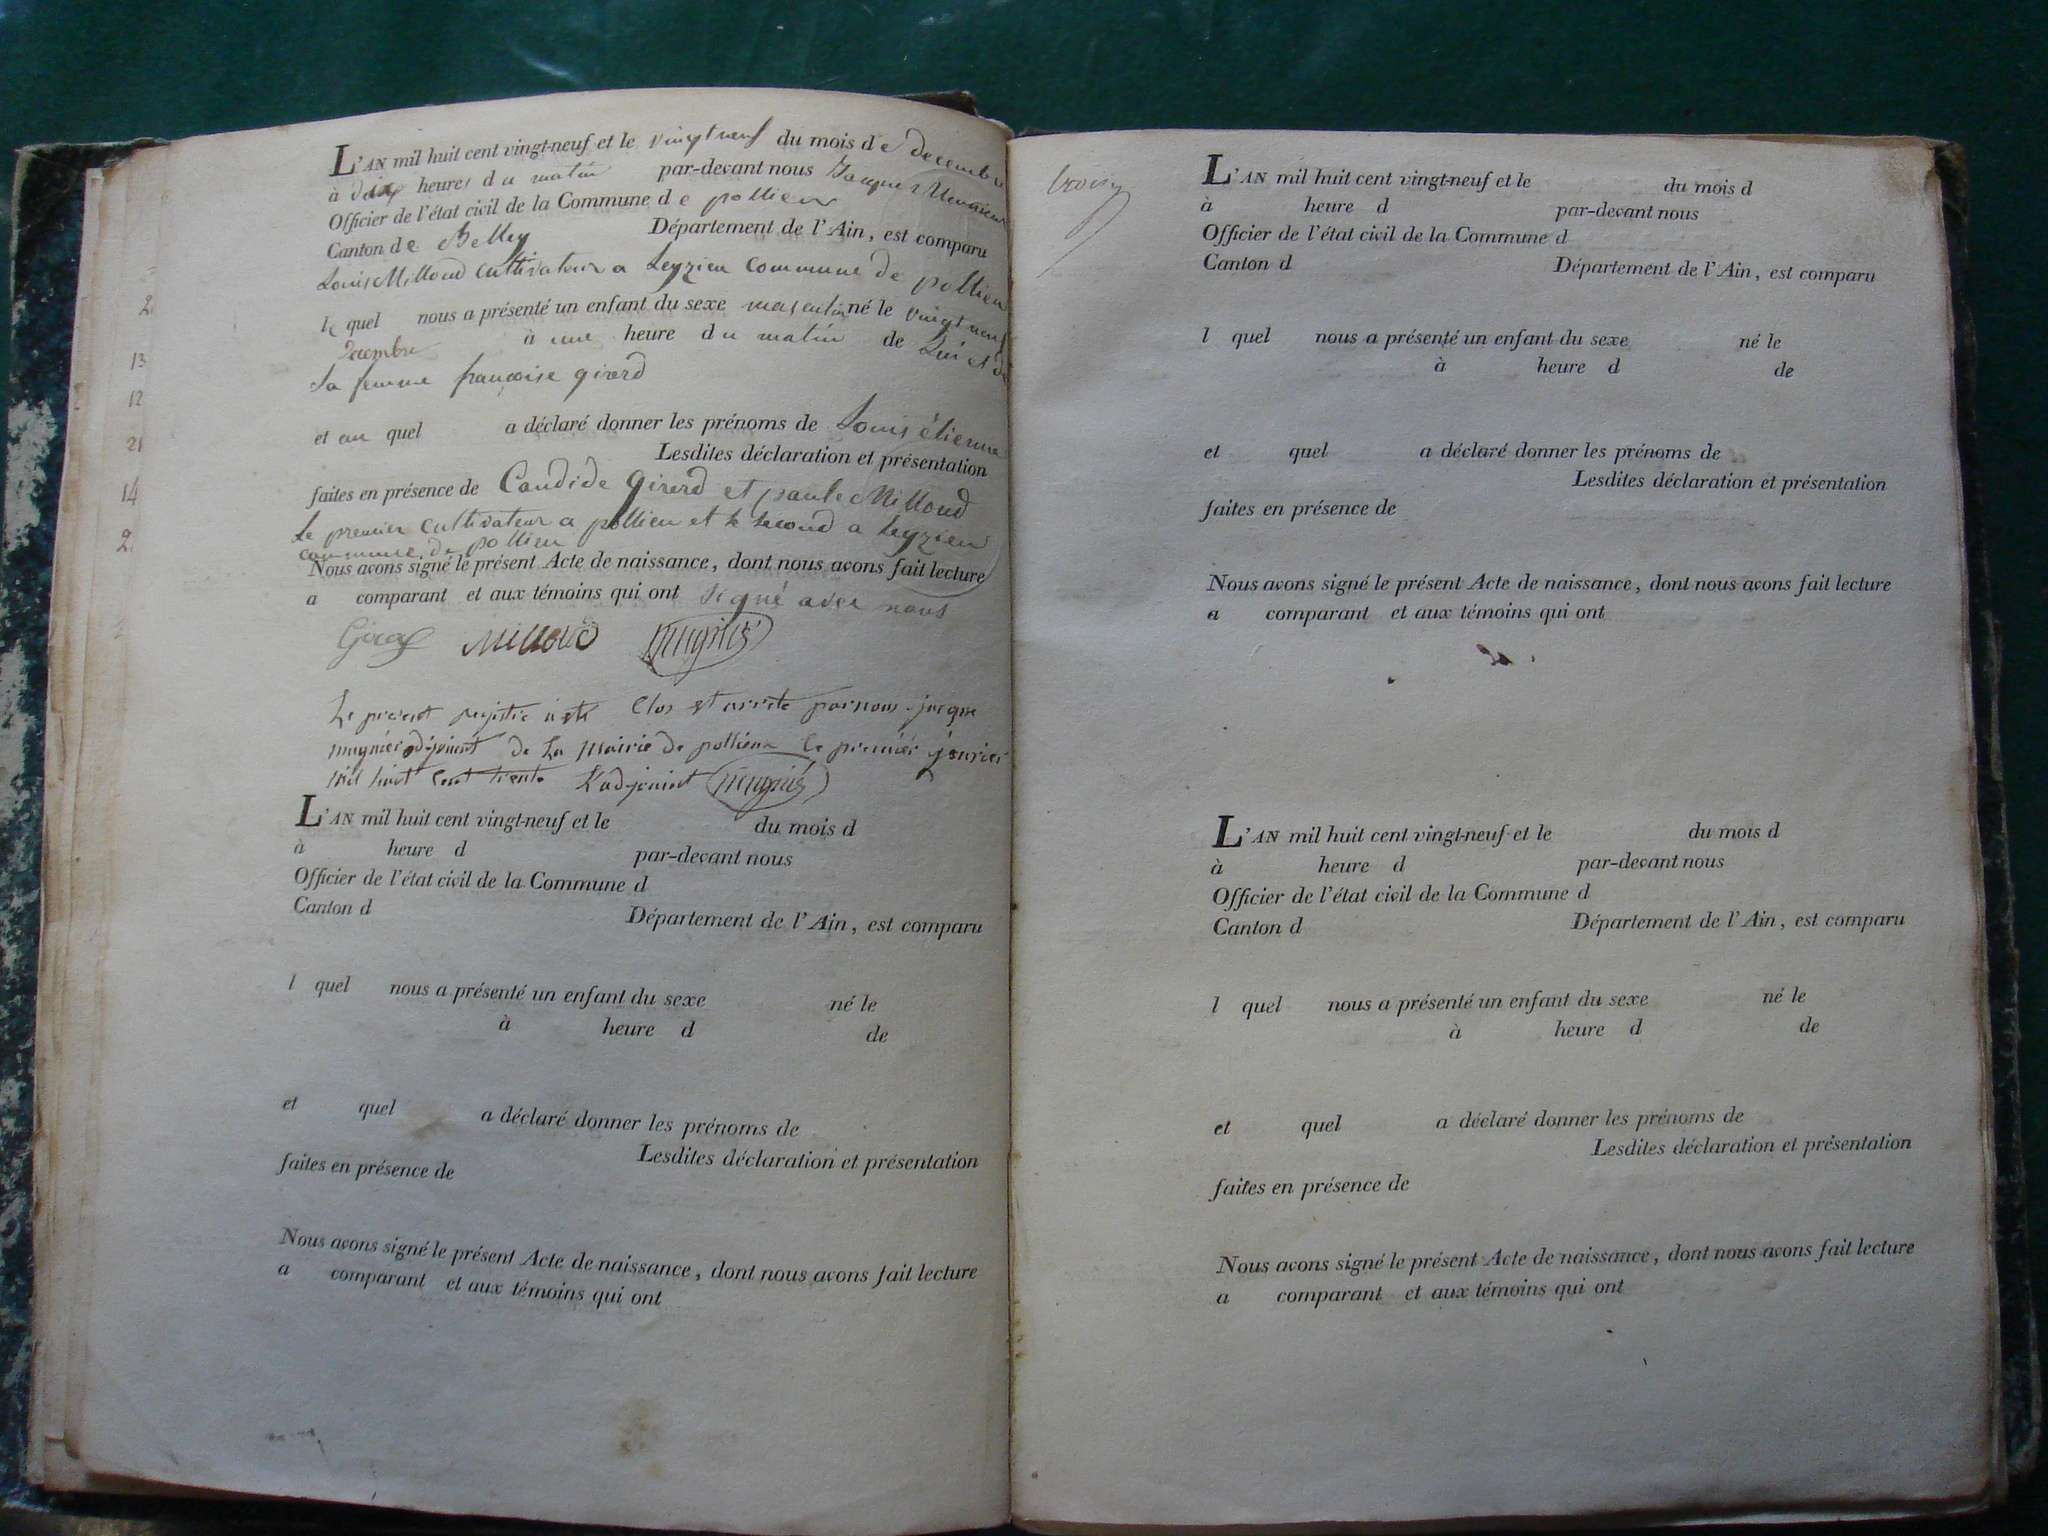 L'AN mil huit cent vingt-neuf et le vingt neuf du mois de decembre
à dix heures du matin par-devant nous Jacques
Officier de l'état civil de la Commune de pollieu
Canton de Belley Département de l'Ain, est comparu
Louis Milloud cultivateur a Leyzieu commune de pollieu
le quel nous a présenté un enfant du sexe masculin né le vingt neuf
Decembre à une heure du matin de Lui et de
Sa femme francoise girerd
et au quel a déclaré donner les prénoms de Louis étienne
Lesdites déclaration et présentation
faites en présence de Candide Girerd et paul Milloud
Le premier cultivateur a pollieu et le second a Leyzieu
commune de pollieu
Nous avons signé le présent Acte de naissance, dont nous avons fait lecture
a comparant et aux témoins qui ont signé avec nous
Milloud
Le present registre Clos et arrete par nous jacque
mugnier adjoint de La Mairie de pollieu le premier janvier
Mil huit Cent trente L'adjoint mugnier
L'AN mil huit cent vingt-neuf et le du mois d
à heure d par-devant nous
Officier de l'état civil de la Commune d
Canton d Département de l'Ain, est comparu
l quel nous a présenté un enfant du sexe né le
à heure d de
et quel a déclaré donner les prénoms de
Lesdites déclaration et présentation
faites en présence de
Nous avons signé le présent Acte de naissance, dont nous avons fait lecture
a comparant et aux témoins qui ont
2
13
12
21
14
2
L'AN mil huit cent vingt-neuf et le du mois d
à heure d par-devant nous
Officier de l'état civil de la Commune d
Canton d Département de l'Ain, est comparu
l quel nous a présenté un enfant du sexe né le
à heure d de
et quel a déclaré donner les prénoms de
Lesdites déclaration et présentation
faites en présence de
Nous avons signé le présent Acte de naissance, dont nous avons fait lecture
a comparant et aux témoins qui ont
L'AN mil huit cent vingt-neuf et le du mois d
à heure d par-devant nous
Officier de l'état civil de la Commune d
Canton d Département de l'Ain, est comparu
l quel nous a présenté un enfant du sexe né le
à heure d de
et quel a déclaré donner les prénoms de
Lesdites déclaration et présentation
faites en présence de
Nous avons signé le présent Acte de naissance, dont nous avons fait lecture
a comparant et aux témoins qui ont